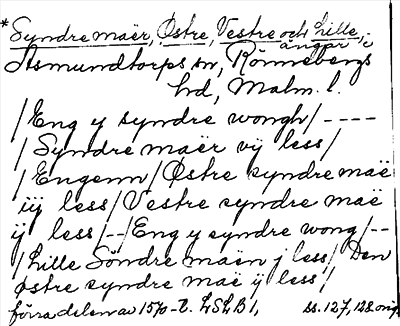 *Syndre maër, Østre, Vestre och Lille,
ängar i
Asmundtorps sn, Rönnebergs
hd, Malm. l.
/Eng y syndre wongh/----
/Syndre maër vÿ less/
/Engenn/Østre syndre maë
iij less/Vestre syndre maë
ÿ less/--/Eng y syndre wong/--
/Lille Söndre maën j less/ Den
østre syndre maë ÿ less/
förra delen av 1570-t. LSLB 1, ss. 127, 128 orig.